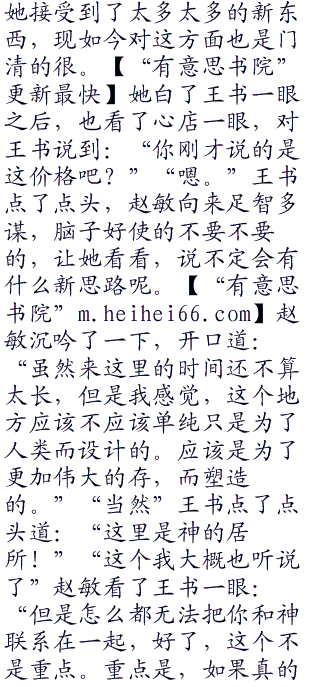 她接受到了太多太多的新东
西，现如今对这方面也是门
清的很。【“有意思书院”
更新最快】她白了王书一眼
之后，也看了心店一眼，对
王书说到：“你刚才说的是
这价格吧？”“嗯。”王书
点了点头，赵敏向来足智多
谋，脑子好使的不要不要
的，让她看看，说不定会有
什么新思路呢。【“有意思
书院”m.heihei66.com】赵
敏沉吟了一下，开口道：
“虽然来这里的时间还不算
太长，但是我感觉，这个地
方应该不应该单纯只是为了
人类而设计的。应该是为了
更加伟大的存，而塑造
的。”“当然”王书点了点
头道：“这里是神的居
所！”“这个我大概也听说
了”赵敏看了王书一眼：
“但是怎么都无法把你和神
联系在一起，好了，这个不
是重点。重点是，如果真的